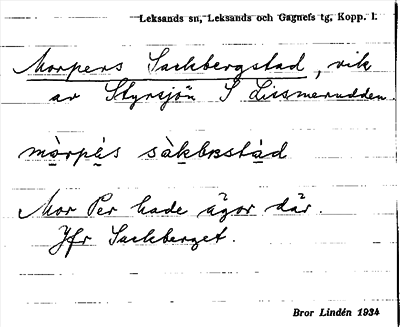 Leksands sn, Leksands och Gagnefs tg, Kopp. l.
Morpers Sackbergstad, vik
av Styrsjön S Lissmerudden.
mòrpès sàkbrstàd
Mor Per hade ägor där.
Jfr Sackberget.
Bror Lindén 1934